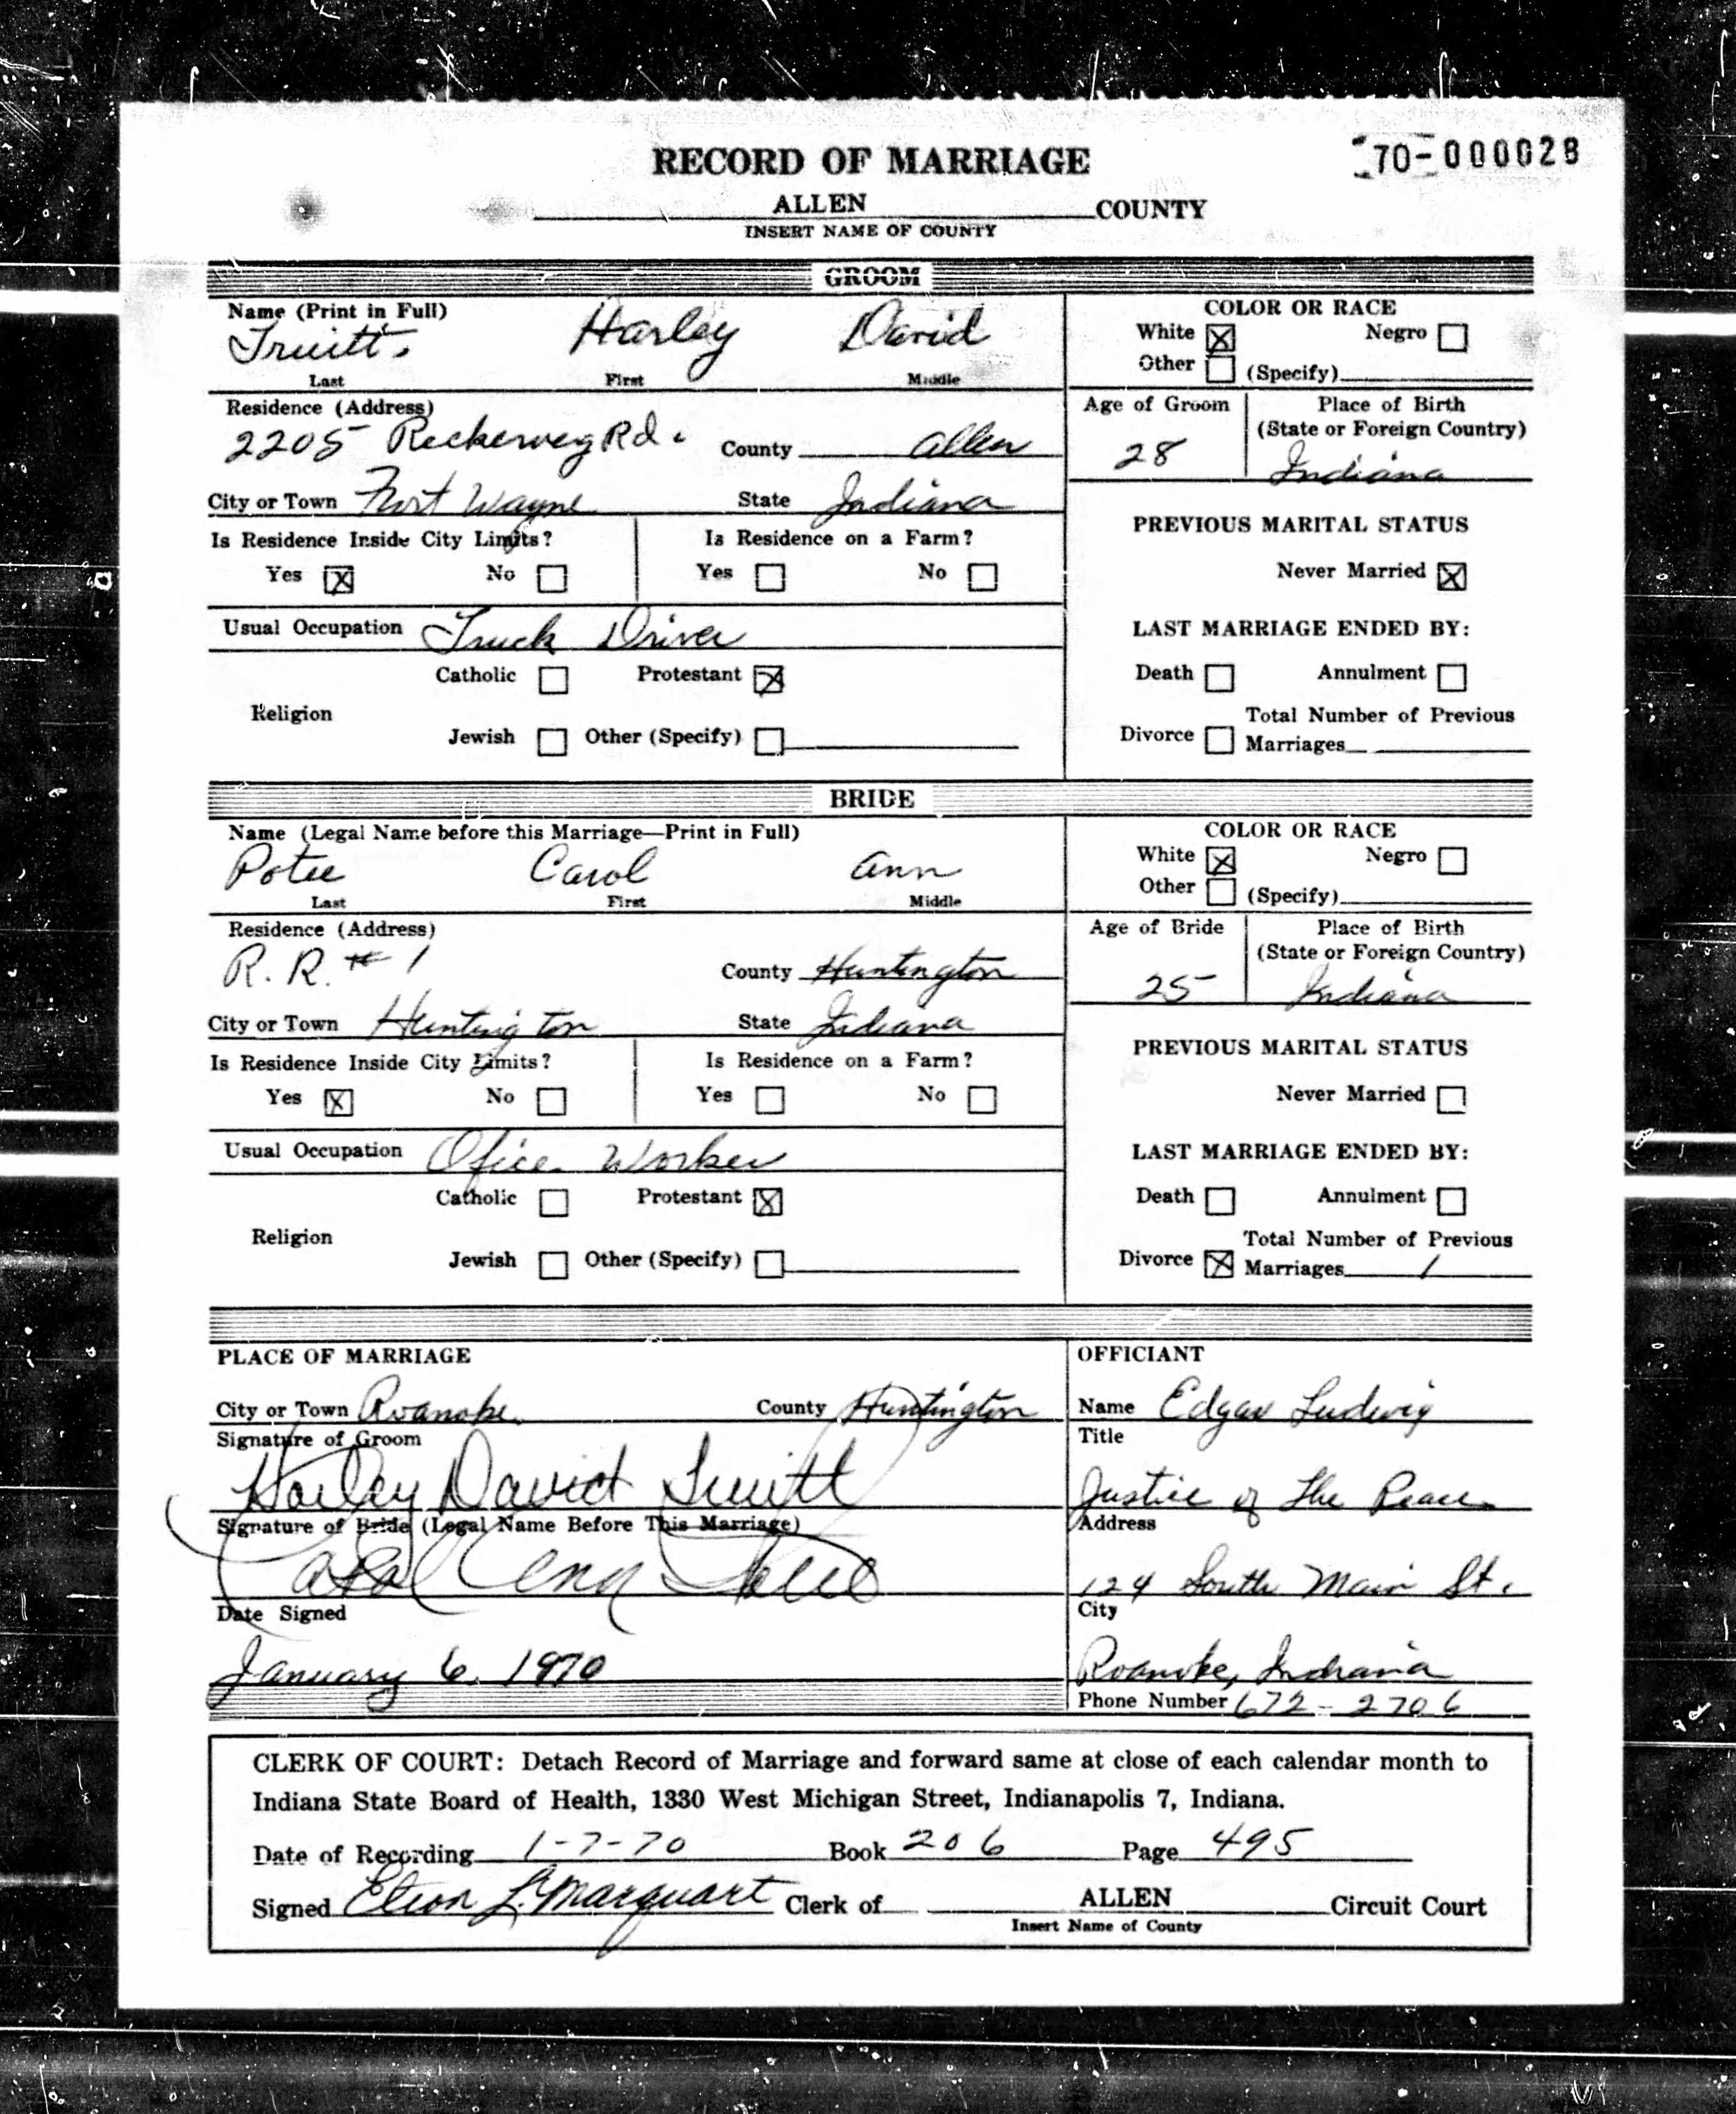 RECORD OF MARRIAGE
70-000028
ALLEN COUNTY
INSERT NAME OF COUNTY
GROOM
Name (Print in Full)
Truitt, Harley David
Last First Middle
COLOR OR RACE
White ☒ Negro ☐
Other ☐ (Specify)
Residence (Address)
2205 Reckeweg Rd. County Allen
City or Town Fort Wayne State Indiana
Age of Groom
28
Place of Birth
(State or Foreign Country)
Indiana
Is Residence Inside City Limits?
Yes ☒ No ☐
Is Residence on a Farm?
Yes ☐ No ☐
PREVIOUS MARITAL STATUS
Never Married ☒
Usual Occupation Truck Driver
LAST MARRIAGE ENDED BY:
Death ☐ Annulment ☐
Divorce ☐ Total Number of Previous
Marriages
Religion
Catholic ☐ Protestant ☒
Jewish ☐ Other (Specify) ☐
BRIDE
Name (Legal Name before this Marriage—Print in Full)
Potee Carol Ann
Last First Middle
COLOR OR RACE
White ☒ Negro ☐
Other ☐ (Specify)
Residence (Address)
R. R. # 1 County Huntington
City or Town Huntington State Indiana
Age of Bride
25
Place of Birth
(State or Foreign Country)
Indiana
Is Residence Inside City Limits?
Yes ☒ No ☐
Is Residence on a Farm?
Yes ☐ No ☐
PREVIOUS MARITAL STATUS
Never Married ☐
Usual Occupation Ofice Worker
LAST MARRIAGE ENDED BY:
Death ☐ Annulment ☐
Divorce ☒ Total Number of Previous
Marriages 1
Religion
Catholic ☐ Protestant ☒
Jewish ☐ Other (Specify) ☐
PLACE OF MARRIAGE
City or Town Roanoke County Huntington
Signature of Groom
Harley David Truitt
Signature of Bride (Legal Name Before This Marriage)
Carol Ann Potee
Date Signed
January 6, 1970
OFFICIANT
Name Edgar Ludwig
Title
Justice of The Peace
Address
124 South Main St.
City
Roanoke, Indiana
Phone Number 672-2706
CLERK OF COURT: Detach Record of Marriage and forward same at close of each calendar month to
Indiana State Board of Health, 1330 West Michigan Street, Indianapolis 7, Indiana.
Date of Recording 1-7-70 Book 206 Page 495
Signed Eleon L. Marquart Clerk of ALLEN Circuit Court
Insert Name of County